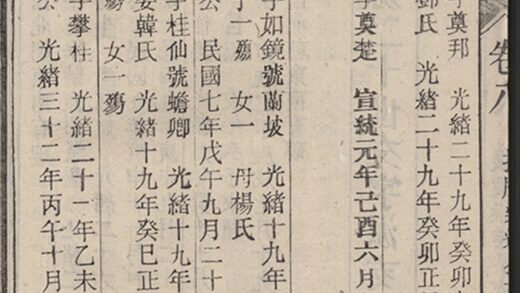 卷八
字奠邦 光緒二十九年癸卯
鄧氏 光緒二十九年癸卯正
字奠楚 宣統元年己酉六月
字如鏡號蘭坡 光緒十九年
子一殤 女一 丹楊氏
公 民國七年戊午九月二十
字桂仙號蟾卿 光緒十九年
娶韓氏 光緒十九年癸巳正
殤 女一殤
字攀桂 光緒二十一年乙未
公 光緒三十二年丙午十月